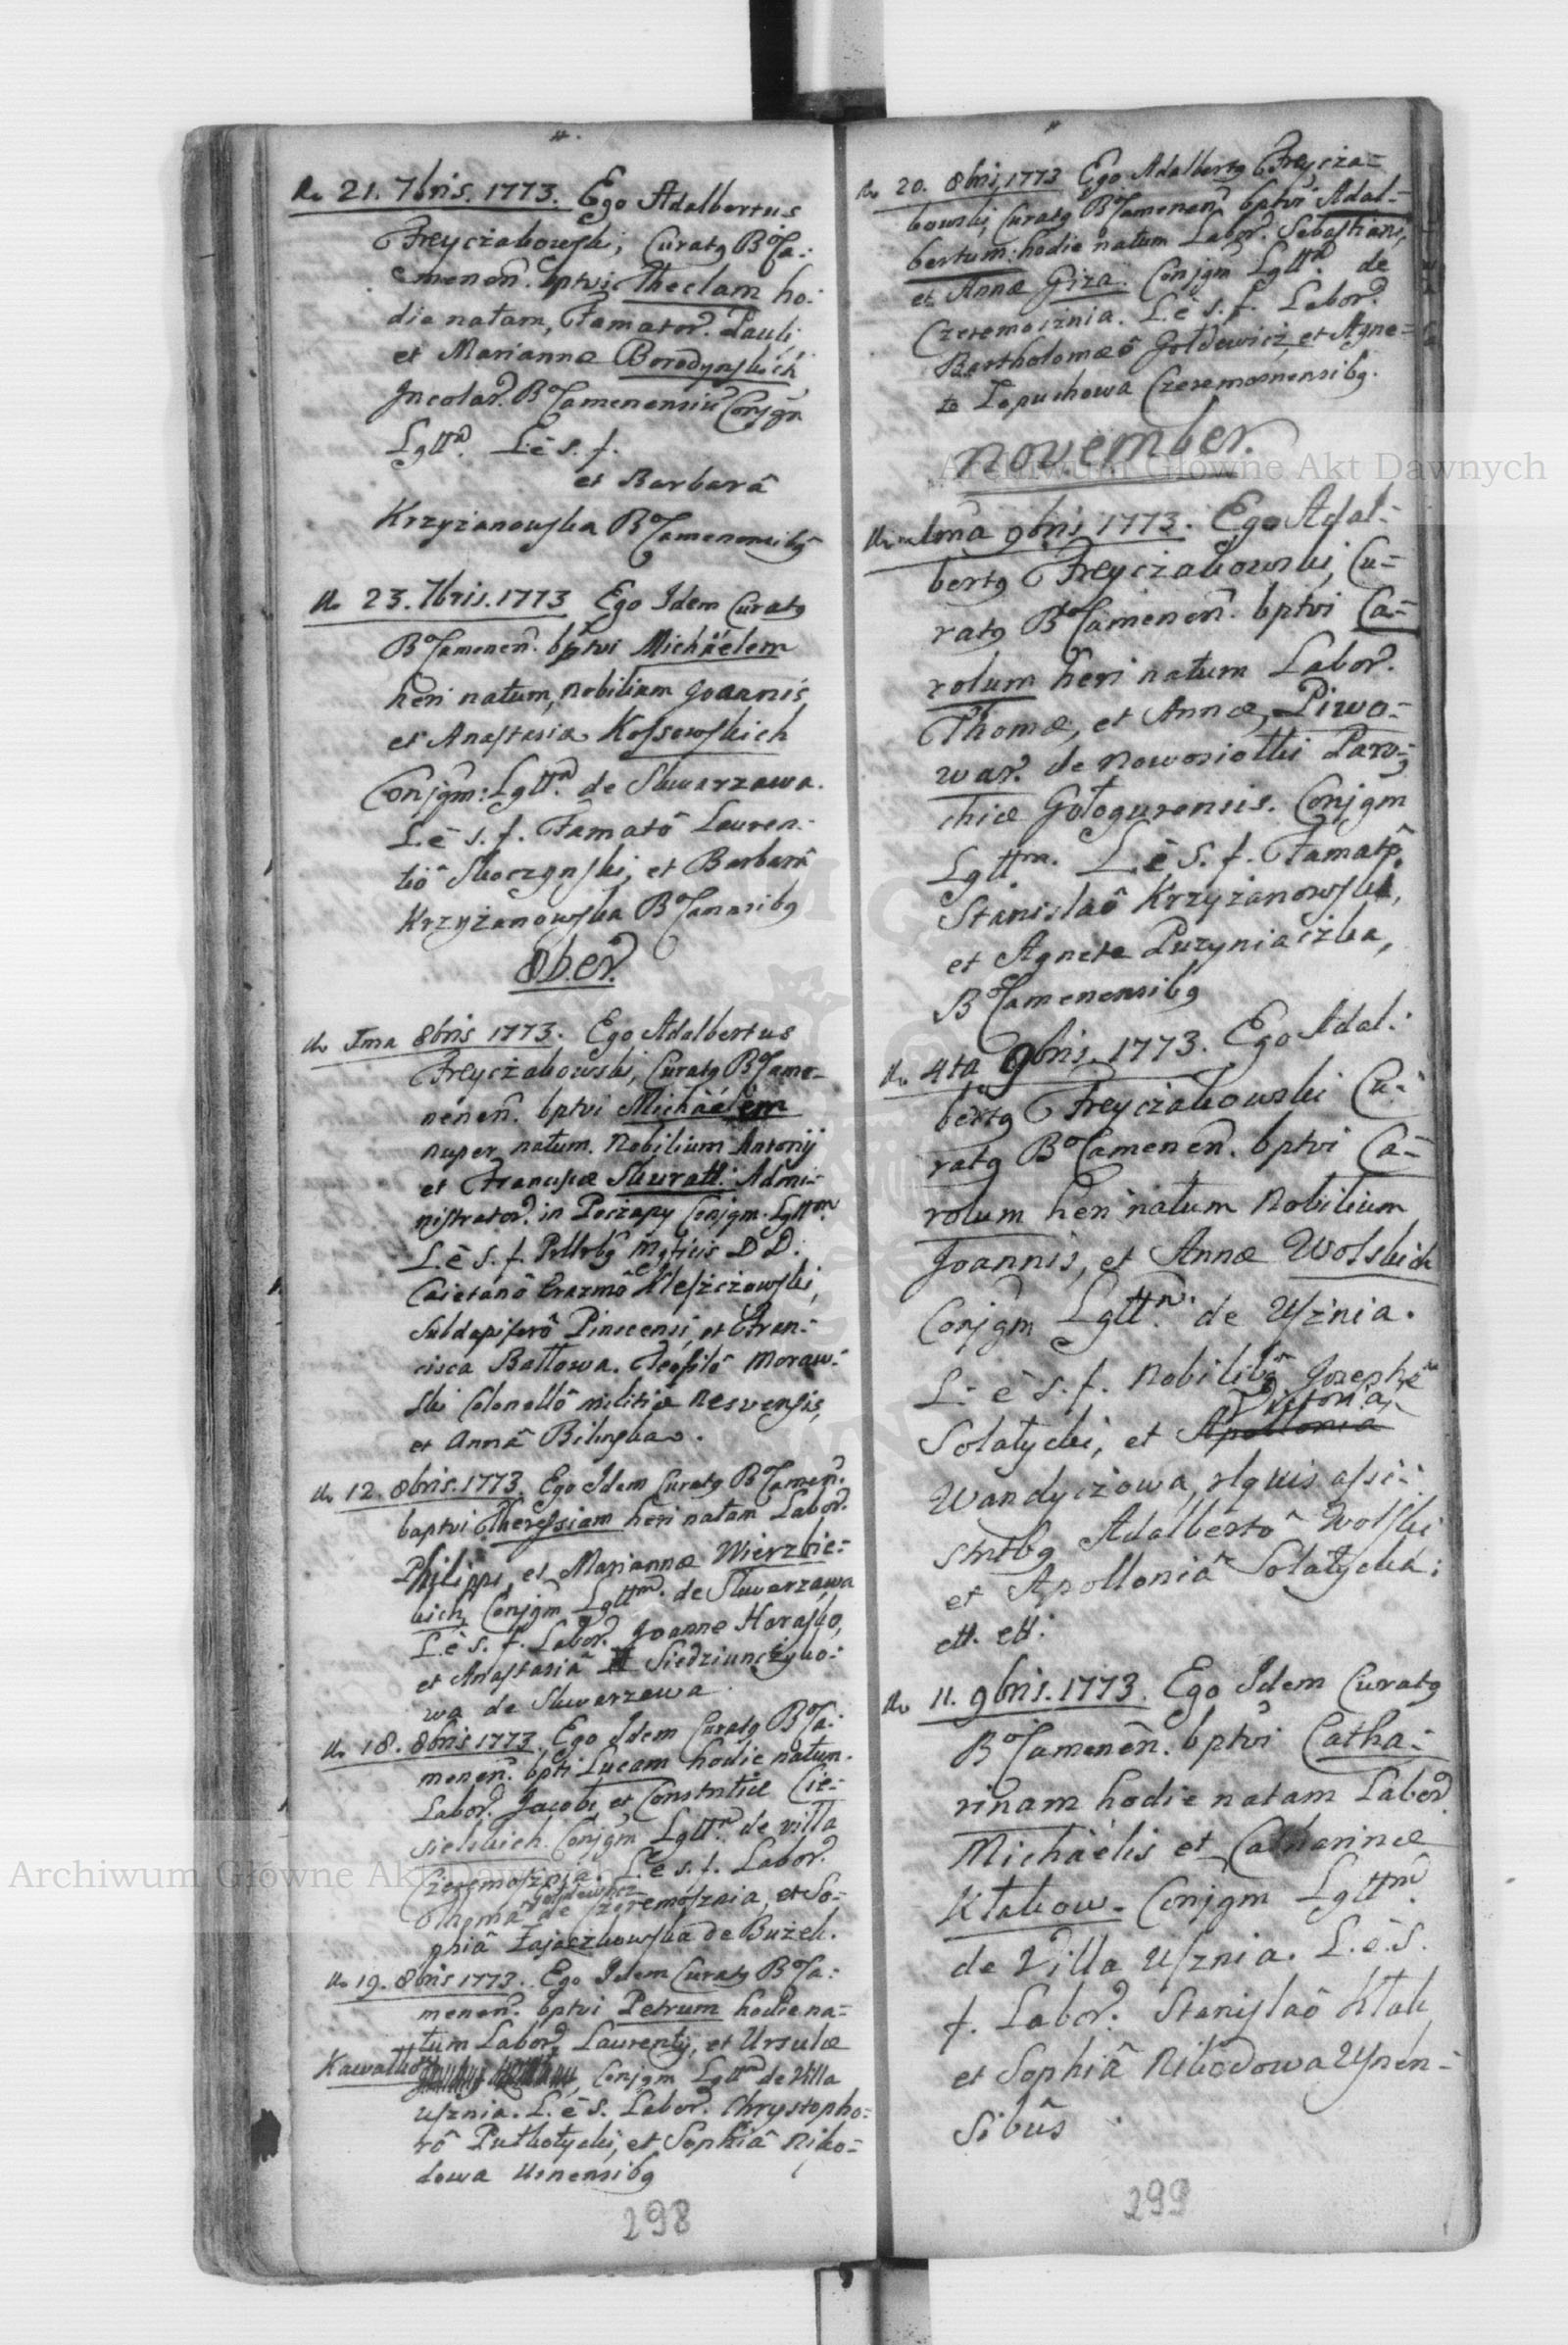 21. 7bris. 1773. Ego Adalbertus
Freyczakowski, Curatg BCa:
menen. bptvi Theclam ho:
die natam, Famator. Pauli,
et Mariannæ Borodynskich
Incolar. BCamenensiu Conjgm
Lgttm. L. è s. f.
et Barbarâ
Krzyżanowska BCamenensibg
23. 7bris. 1773 Ego Idem Curatg
BCamenen. bptvi Michäelem
heri natum, nobilium Joannis,
et Anastasiæ Kossowskich
Conjgm: Lgttm. de Skwarzawa.
L. è s. f. Famatô Lauren:
tiô Skoczynski, et Barbarâ
Krzyżanowska
8b.er.
Ima 8bris 1773. Ego Adalbertus
Freyczakowski, Curatg BCame-
nenen. bptvi Michäelem
nuper natum. Nobilium Antonij
et Franciscæ Skuratt: Admi-
nistrator. in Poczapy Conjgm. Lgttm.
L. è s. f. Mgficis D D.
Caietanô Erazmô
Subdapiferô Pinscensi, et Fran:
cisca Battowa. Teofilô Moraw:
ski Colonellô militiæ
et Annâ Bilinska.
12. 8bris. 1773. Ego Idem Curatg BCamen.
baptvi Theressiam heri natam Labor.
Philippi, et Mariannæ Wierzbic:
kich, Conjgm Lgttm. de Skwarzawa
L. è s. f. Labor. Joanne Harasko,
et Anastasiâ Siedziunczyko:
wa de Skwarzawa.
18. 8bris 1773. Ego Idem Curatg BCa:
menen. bpti Lucam hodie natum.
Labor. Jacobi, et Constntiæ Cie-
sielskich. Conjgm Lgttm. de villa
Czeremosznia. L. è s. f. Labor.
Gołdewicz
Thomâ de Czeremosznia, et So-
phiâ Zajaczkowska de Bużek.
19. 8bris 1773. Ego Idem Curatg BCa:
menen. bptvi Petrum hodie na=
tum Labor. Laurentij, et Ursulæ
Conjgm Lgttm de Villa
Usznia. L. è s. Labor. Chrystopho:
rô Putkołycki, et Sophiâ Niko=
dowa Usnensibg
298
20. 8bris 1773 Ego Adalbertg Freycza=
kowski, Curatg BCamenen. bptvi Adal-
bertum: hodie natum Labor. Sebastiani,
et Annæ Giza. Conjgm Lgttm. de
Czeremosznia. L. è s. f. Labor.
Bartholomæô Gołdewicz, et Agne=
te Łopuchowa Czeremosnensibg.
november.
Ima 9bris 1773. Ego Adal:
bertg Freyczakowski, Cu=
ratg BCamenen. bptvi Ca=
rolum heri natum Labor.
Thomæ, et Annæ, Piwo=
war. de Nowosiołki Paro=
chiæ Gołogurensis. Conjgm
Lgttm. L. è s. f. Famato.
Stanislaô Krzyżanowski,
et Agnete Puzyniaczka,
BCamenensibg
4ta 9bris. 1773. Ego Adal:
bertg Freyczakowski Cu:
ratg BCamenen. bptvi Ca=
rolum heri natum Nobilium
Joannis, et Annæ Wolskich
Conjgm Lgttm. de Usznia.
L. è s. f. Nobilibg Josephô
Solatycki, et Apollonia
Wandyczowa, rlquis assi:
stntbg Adalbertô Wolski
et Apolloniâ Solatycka:
ett. ett:
11. 9bris. 1773. Ego Idem Curatg
BCamenen. bptvi Catha:
rinam hodie natam Labor.
Michäelis et Catharinæ
Kłakow. Conjgm Lgttm.
de Villa Usznia. L. è. s.
f. Labor. Stanislaô Kłak,
et Sophiâ Nikodowa Usnen-
sibus
299
Archiwum Główne Akt Dawnych
Archiwum Główne Akt Dawnych